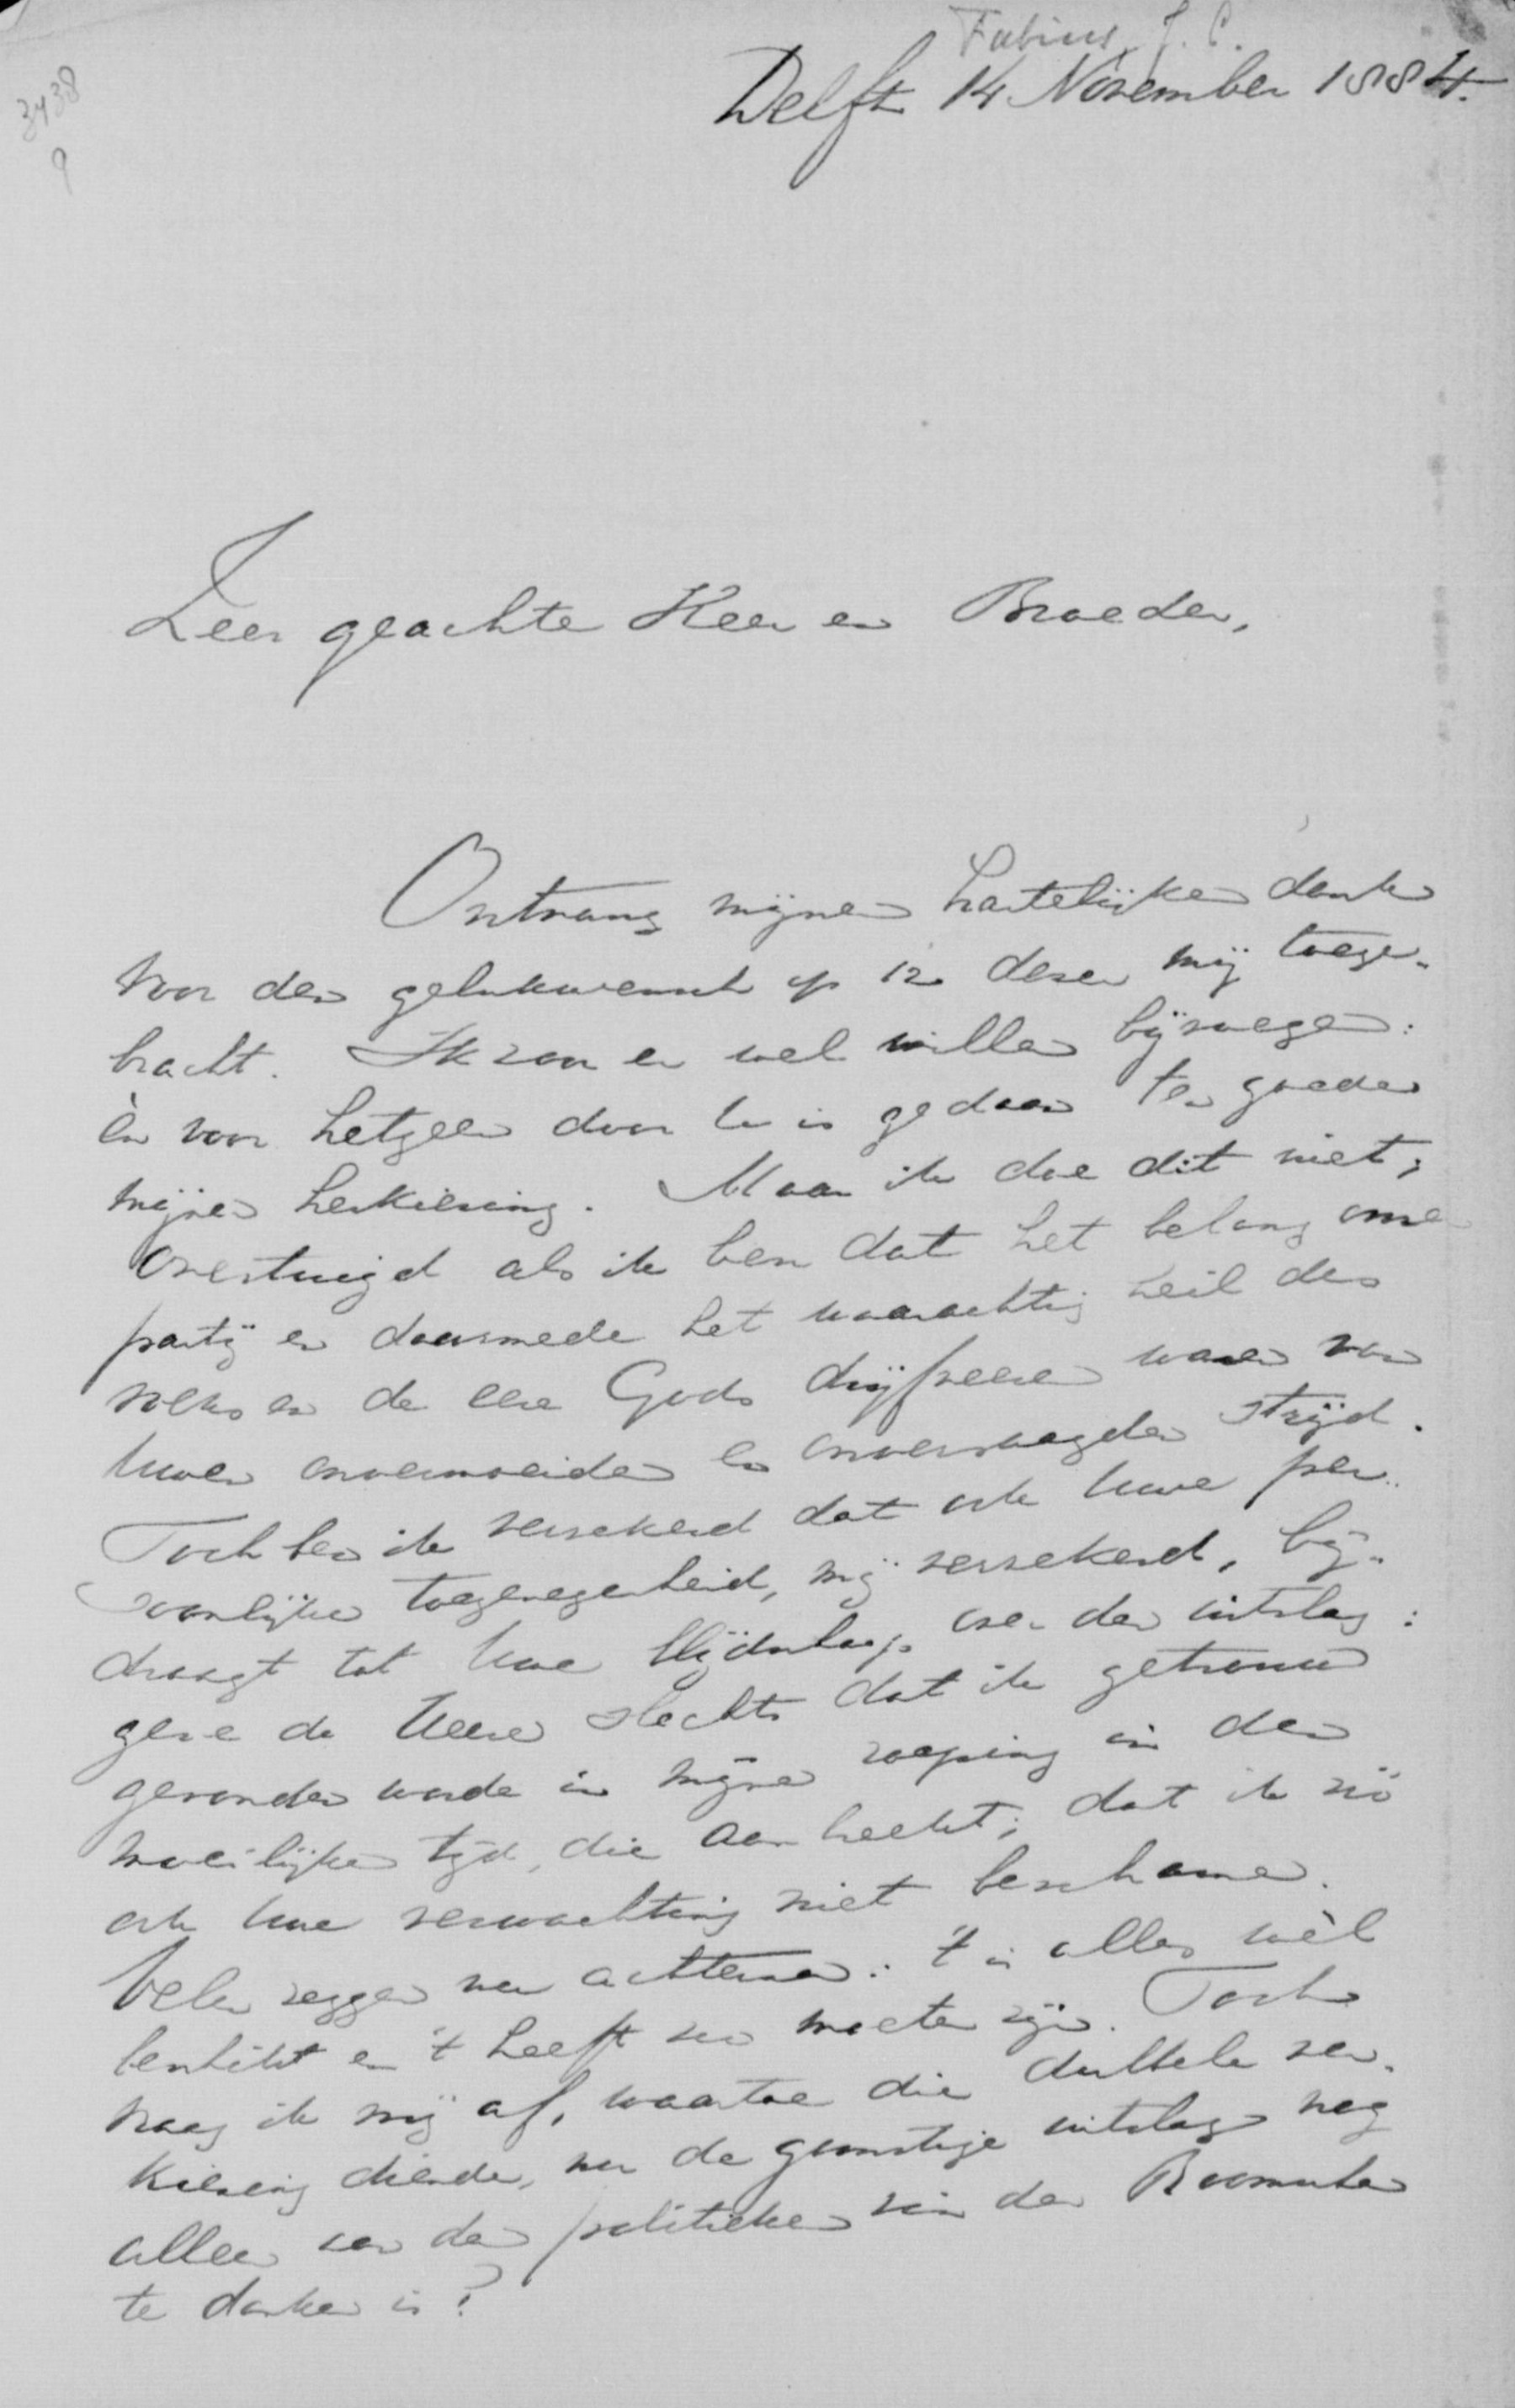 Fabius, J. C.
Delft 14 November 1884.
3438
9
Zeer geachte Heer en Broeder,
Ontvang mijnen hartelijken dank
voor den gelukwensch op 12 dezer mij toege-
bracht. Ik zou er wel willen bijvoegen:
èn voor hetgeen door U is gedaan ten goede
mijner herkiezing. Maar ik doe dit niet;
overtuigd als ik ben dat het belang onzer
partij en daarmede het waarachtig heil des
volks en de eere Gods drijfveeren waren van
Uwen onvermoeiden en onversaagden strijd.
Toch ben ik verzekerd dat ook Uwe per-
soonlijke toegenegenheid, mij verzekerd, bij-
draagt tot Uwe blijdschap over den uitslag:
geve de Heere slechts dat ik getrouw
gevonden worde in mijne roeping in den
moeilijken tijd, die aanbreekt; dat ik zóó
ook Uwe verwachting niet beschame.
Velen zeggen nu achterna: 't is alles wèl
beschikt en 't heeft zoo moeten zijn. Toch
vraag ik mij af, waartoe die dubbele ver-
kiezing diende, nu de gunstige uitslag nog
alleen aan de politieke zin der Roomschen
te danken is?